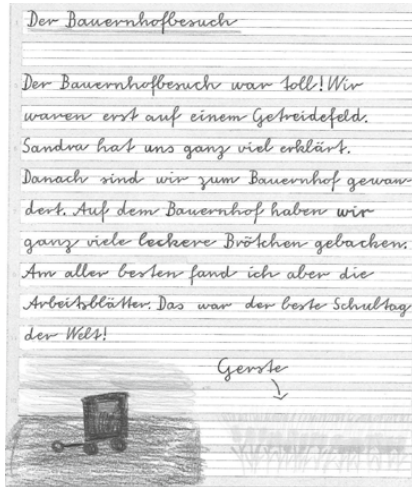 Der Bauernhofbesuch
Der Bauernhofbesuch war toll! Wir
waren erst auf einem Getreidefeld.
Sandra hat uns ganz viel erklärt.
Danach sind wir zum Bauernhof gewan-
dert. Auf dem Bauernhof haben wir
ganz viele leckere Brötchen gebacken.
Am aller besten fand ich aber die
Arbeitsblätter. Das war der beste Schultag
der Welt!
Gerste